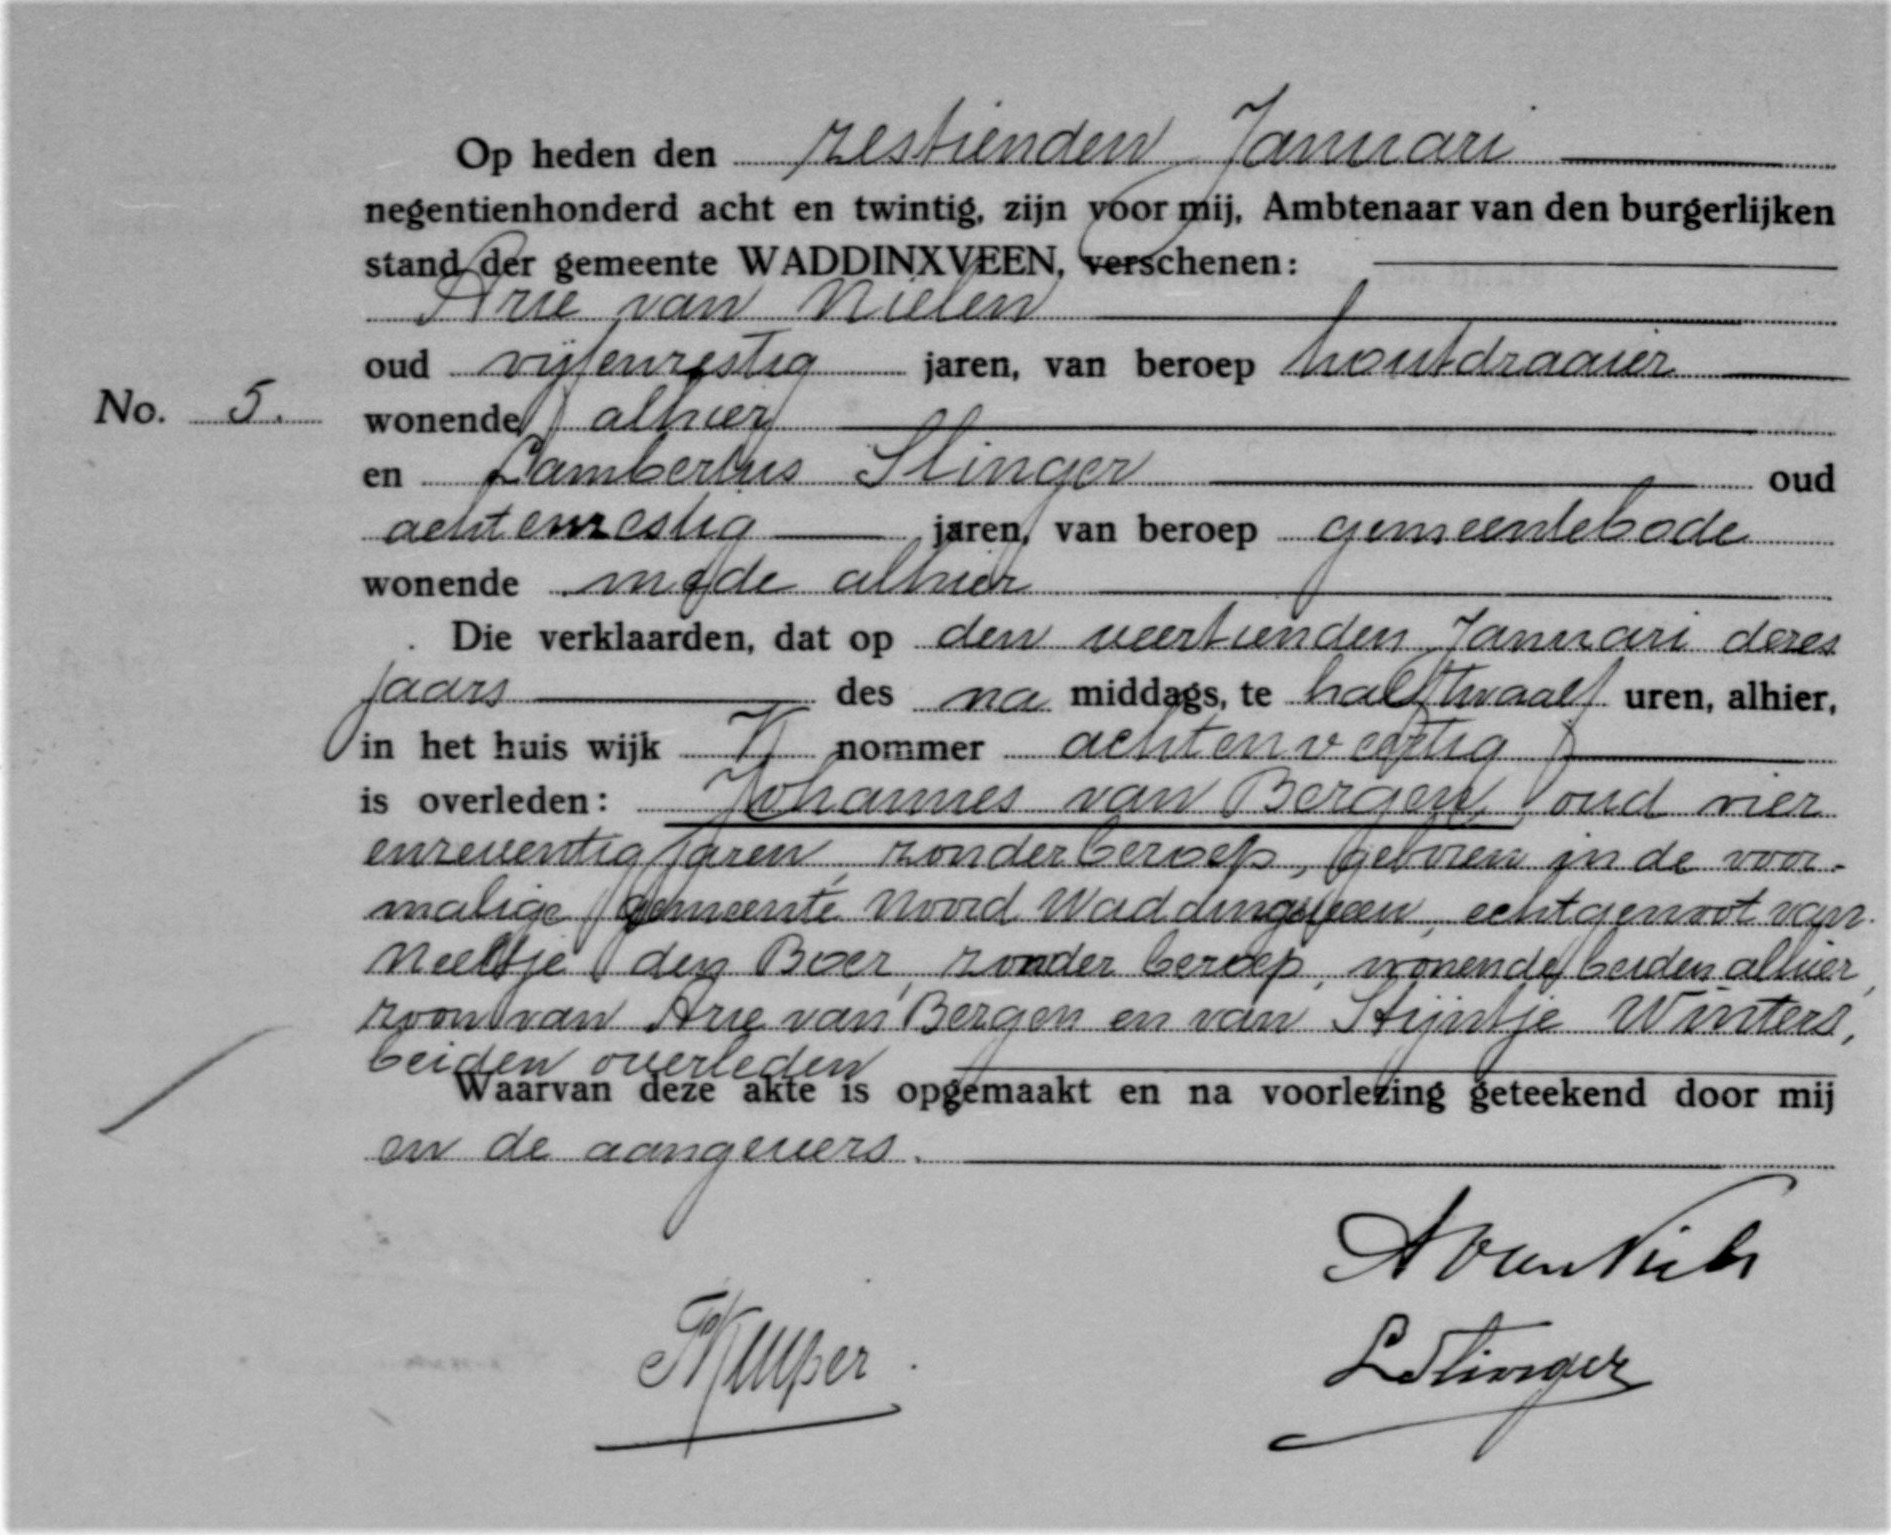 Op heden den zestienden Januari
negentienhonderd acht en twintig, zijn voor mij, Ambtenaar van den burgerlijken
stand der gemeente WADDINXVEEN, verschenen:
Arie van Nielen
oud vijfenzestig jaren, van beroep houtdraaier
No. 5. wonende alhier
en Lambertus Slinger oud
achtenzestig jaren, van beroep gemeentebode
wonende mede alhier
Die verklaarden, dat op den veertienden Januari dezes
jaars des na middags, te half twaalf uren, alhier,
in het huis wijk K nommer achtenveertig
is overleden: Johannes van Bergen, oud vier
enzeventig jaren, zonder beroep, geboren in de voor-
malige gemeente Noord Waddingsveen, echtgenoot van
Neeltje den Boer, zonder beroep, wonende beiden alhier,
zoon van Arie van Bergen en van Stijntje Winters,
beiden overleden
Waarvan deze akte is opgemaakt en na voorlezing geteekend door mij
en de aangevers.
A van Niele
Kuijper.
L Slinger